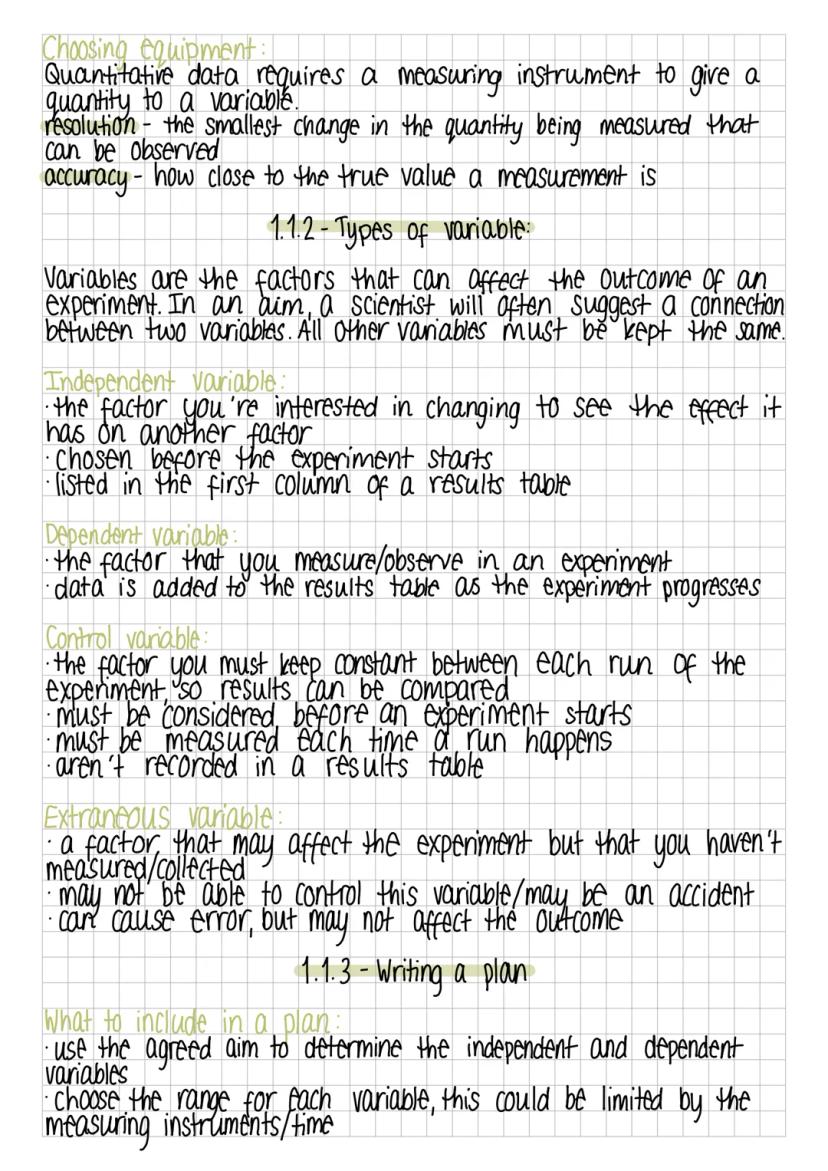 Choosing equipment:
Quantitative data requires a measuring instrument to give a
quantity to a variable.
resolution - the smallest change in the quantity being measured that
can be observed
accuracy - how close to the true value a measurement is
1.1.2 - Types of variable:
Variables are the factors that can affect the outcome of an
experiment. In an aim, a scientist will often suggest a connection
between two variables. All other variables must be kept the same.
Independent variable:
· the factor you're interested in changing to see the effect it
has on another factor
· chosen before the experiment starts
· listed in the first column of a results table
Dependent variable:
· the factor that you measure/observe in an experiment
· data is added to the results table as the experiment progresses
Control variable:
· the factor you must keep constant between each run of the
experiment, so results can be compared
· must be considered before an experiment starts
· must be measured each time a run happens
· aren't recorded in a results table
Extraneous variable:
· a factor that may affect the experiment but that you haven't
measured/collected
· may not be able to control this variable/may be an accident
· can cause error, but may not affect the outcome
1.1.3 - Writing a plan
What to include in a plan:
· use the agreed aim to determine the independent and dependent
variables
· choose the range for each variable, this could be limited by the
measuring instruments/time